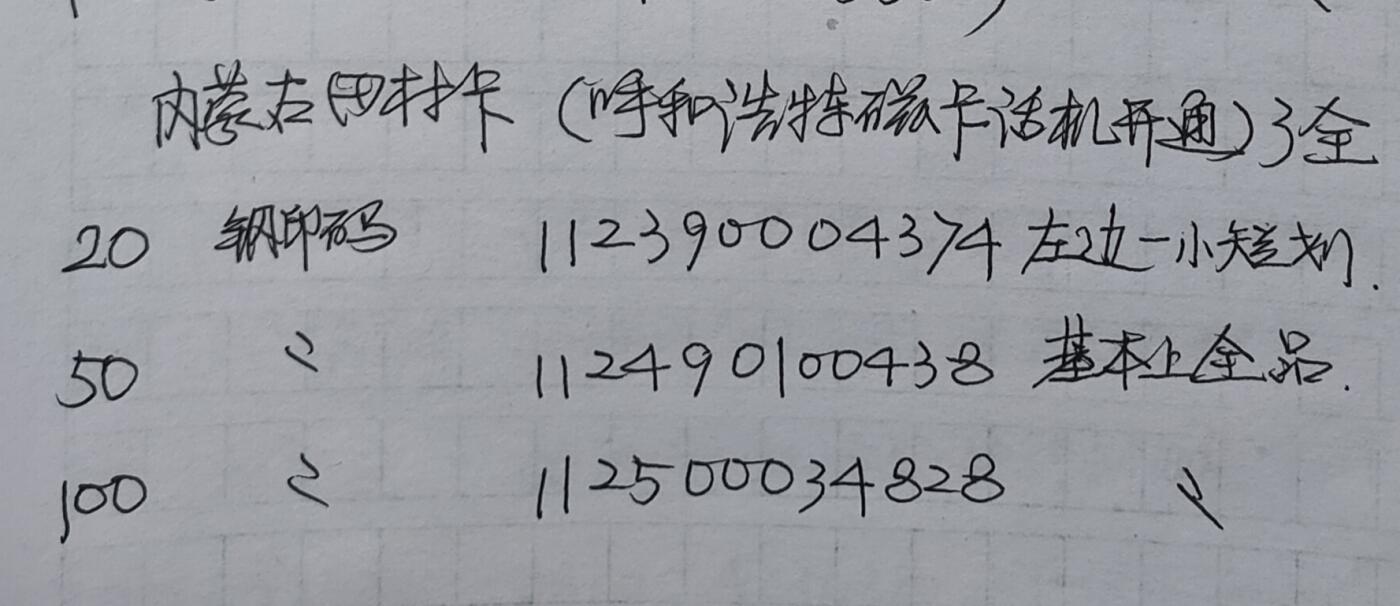 内蒙古田村卡（呼和浩特磁卡话机开通）3全
20 钢印码 112390004374 左边一小短划.
50 〃 112490100438 基本上全品.
100 〃 112500034828 〃